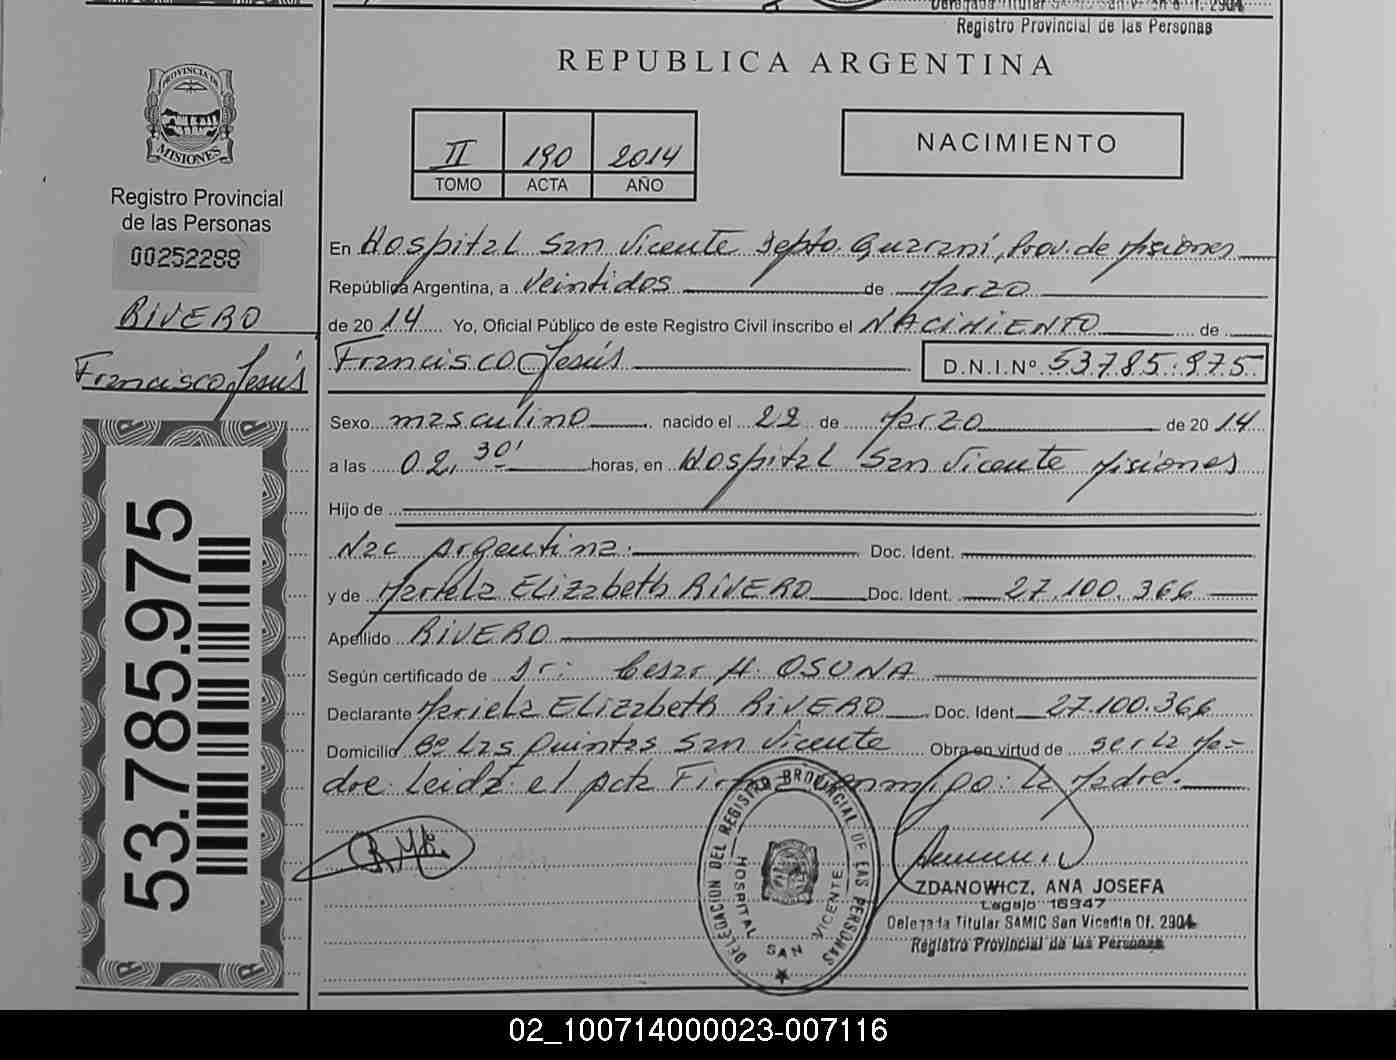 Delegada Titular SAMIC San Vicente Of. 2904
Registro Provincial de las Personas
REPUBLICA ARGENTINA
PROVINCIA DE
MISIONES
Registro Provincial
de las Personas
00252288
RIVERO
Francisco Jesús
53.785.975
II 190 2014
TOMO ACTA AÑO
NACIMIENTO
En Hospital San Vicente Depto. Guaraní, Prov. de Misiones
República Argentina, a veintidos de Marzo
de 2014 Yo, Oficial Público de este Registro Civil inscribo el NACIMIENTO de
Francisco Jesús D.N.I.Nº 53.785.975
Sexo masculino nacido el 22 de Marzo de 2014
a las 02,30' horas, en Hospital San Vicente Misiones
Hijo de
Nac Argentina. Doc. Ident.
y de Mariela Elizabeth RIVERO Doc. Ident. 27.100.366
Apellido RIVERO
Según certificado de Dr: Cesar H. OSUNA
Declarante Mariela Elizabeth RIVERO Doc. Ident. 27.100.366
Domicilio Bº Las Quintas San Vicente Obra en virtud de ser la Ma=
dre: Leida el Acta Firma conmigo: La Madre.
DELEGACION DEL REGISTRO PROVINCIAL DE LAS PERSONAS
HOSPITAL SAN VICENTE
ZDANOWICZ, ANA JOSEFA
Legajo 16947
Delegada Titular SAMIC San Vicente Of. 2904
Registro Provincial de las Personas
02_100714000023-007116